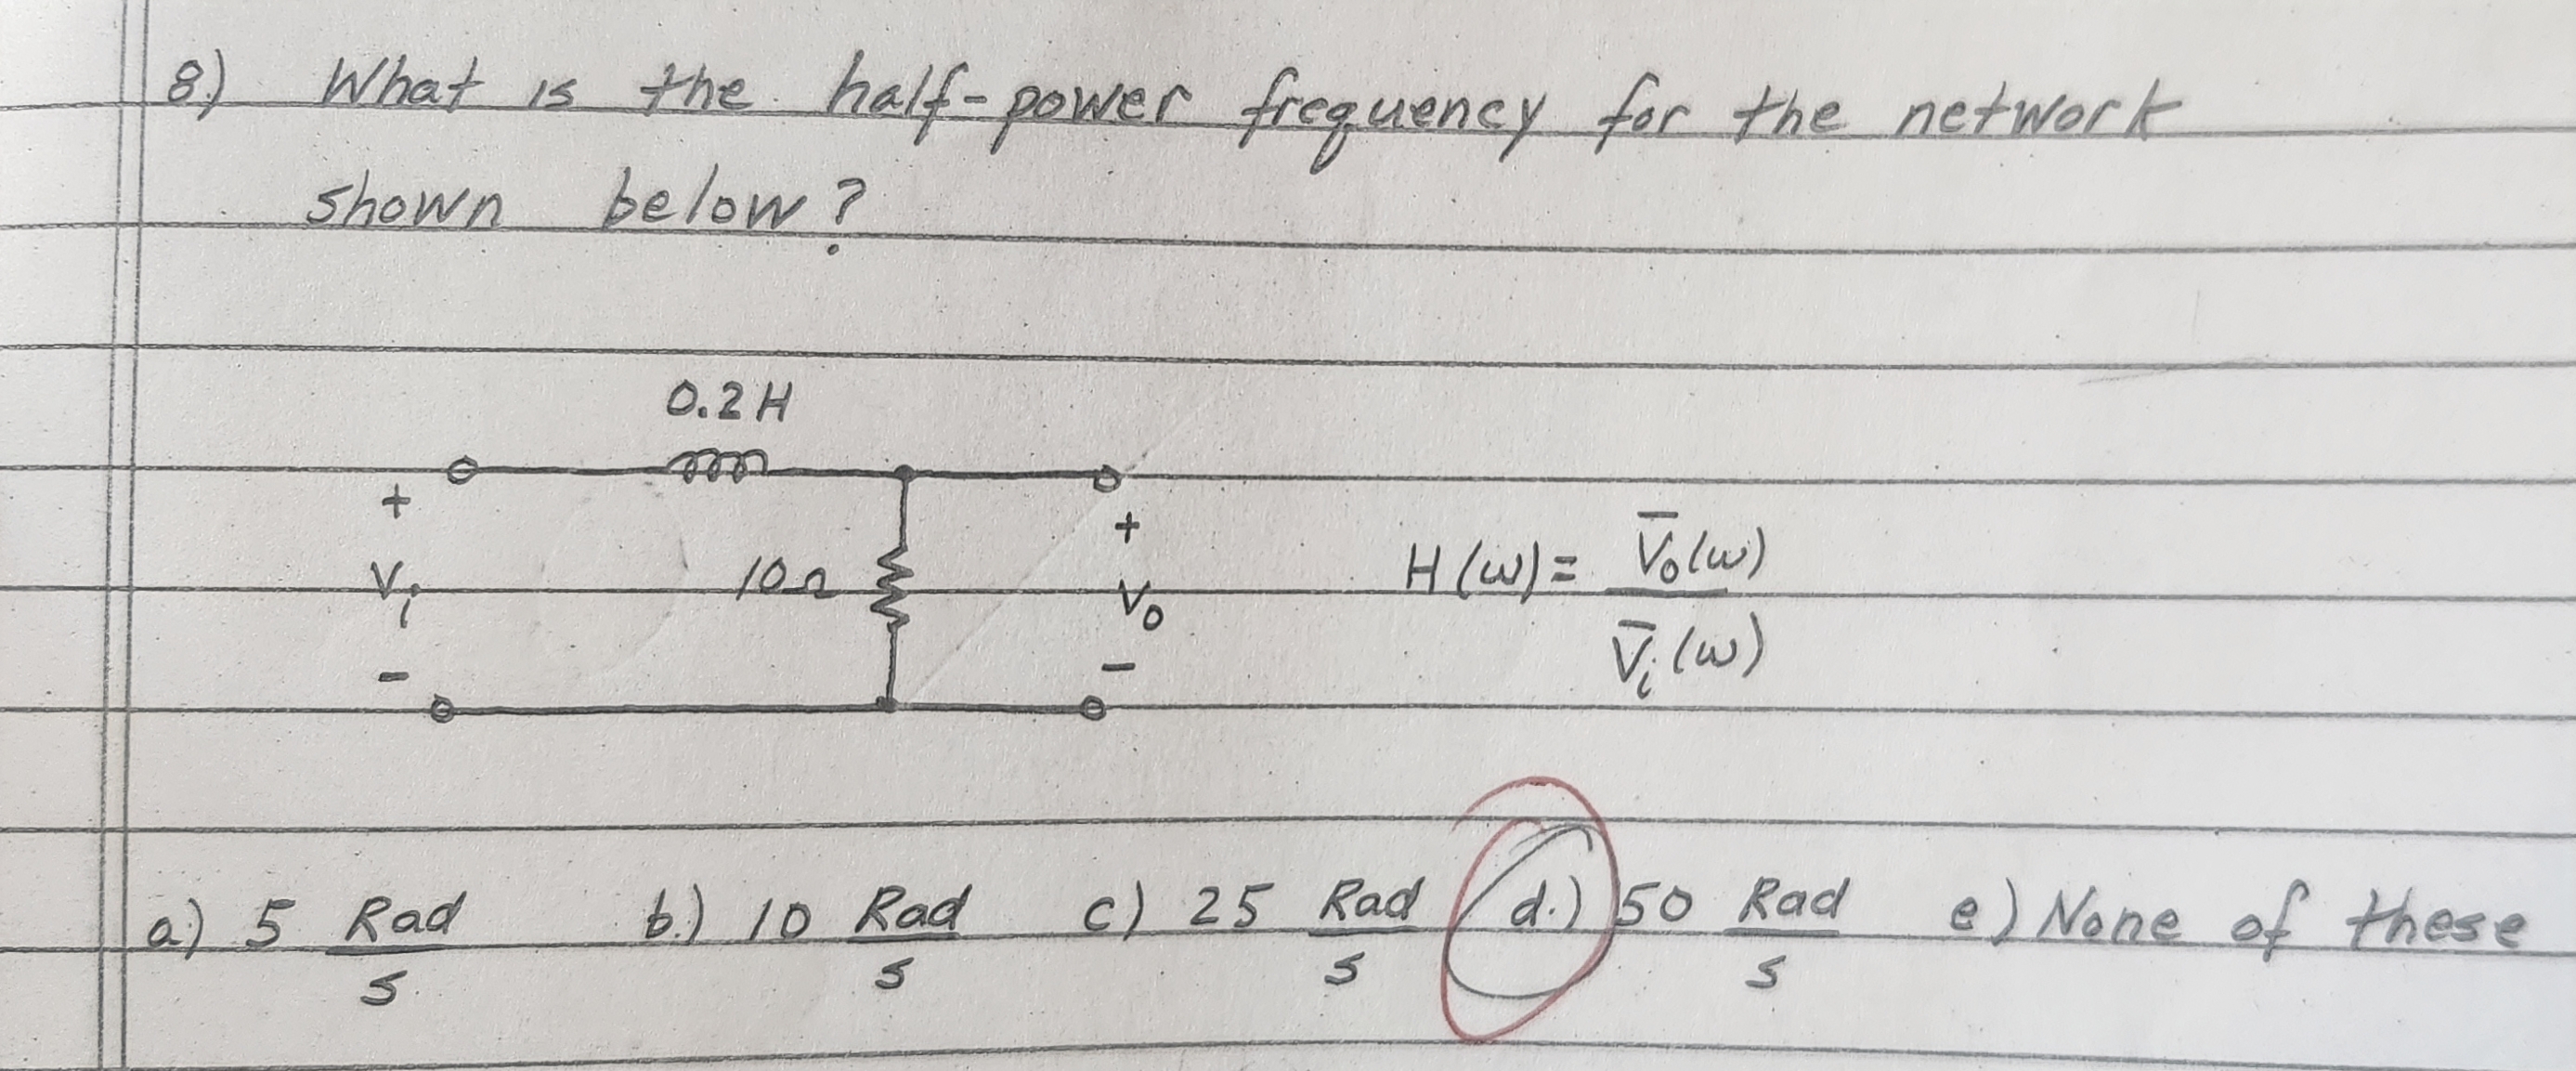 8.) What is the half-power frequency for the network
shown below?
0.2H
+ Vi -
10Ω
+ Vo -
H(ω) = V̅o(ω) / V̅i(ω)
a.) 5 Rad/s b.) 10 Rad/s c.) 25 Rad/s d.) 50 Rad/s e.) None of these